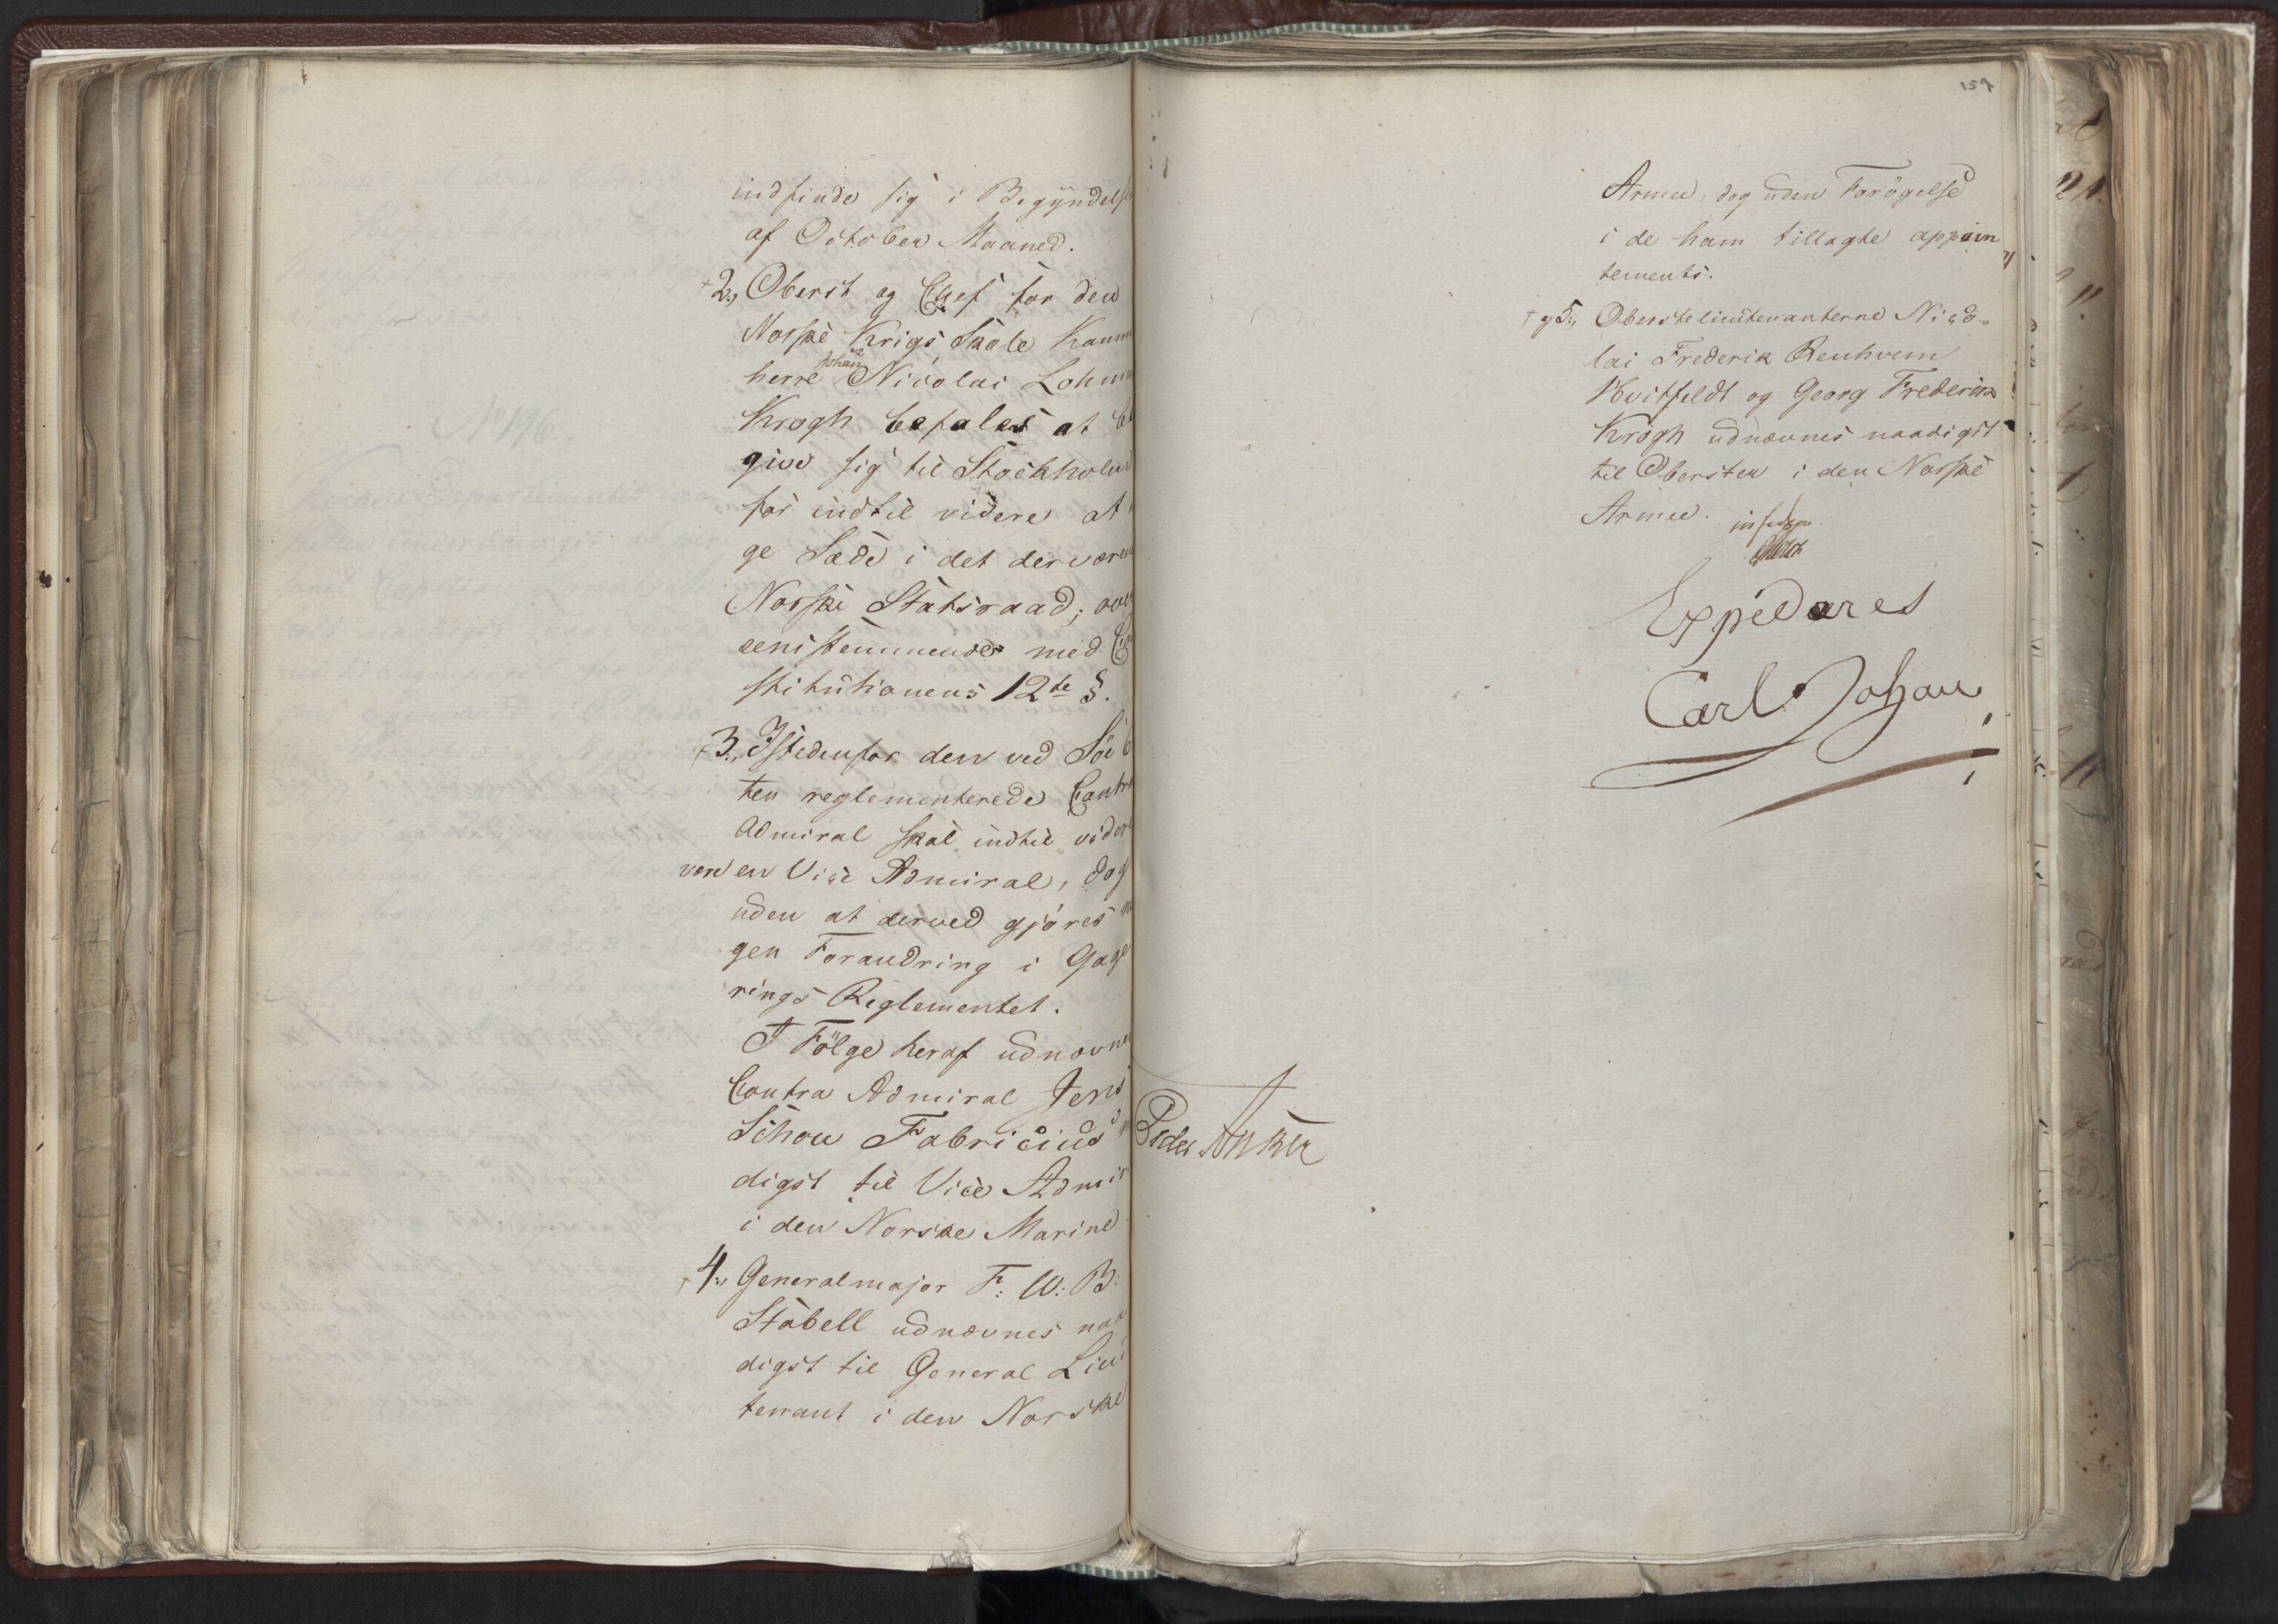 indfinde sig i Begyndels
af October Maaned.
2., Oberst og Chef for den
Norske Krigs Skole Kamm
herre Johan Nicolai Lohm
Krogh befales at be
give sig til Stockholm
for indtil videre at
ge Sæde i det derværen
Norske Statsraad; over
eensstemmende med Con
stitutionens 12te §.
3., Istedenfor den ved Söe E
ten reglementerede Contra
Admiral skal indtil vider
være en Vice Admiral, dog
uden at derved gjöres
gen Forandring i Gage
rings Reglementet.
I Fölge heraf udnævne
Contra Admiral Jens
Schou Fabricius
digst til Vice Admir
i den Norske Marine
4., Generalmajor F: W: B:
Stabell udnævnes naa
digst til General Lieu
tenant i den Norske
157
Armee, dog uden Forögelse
i de ham tillagte appoin
tements.
og 5., Oberstelieutenanterne Nico-
lai Frederik Renhvem
Hvitfeldt og Georg Frederik
Krogh udnævnes naadigst
til Oberster i den Norske
Armee.
Expederes
Carl Johan
Peder Anker